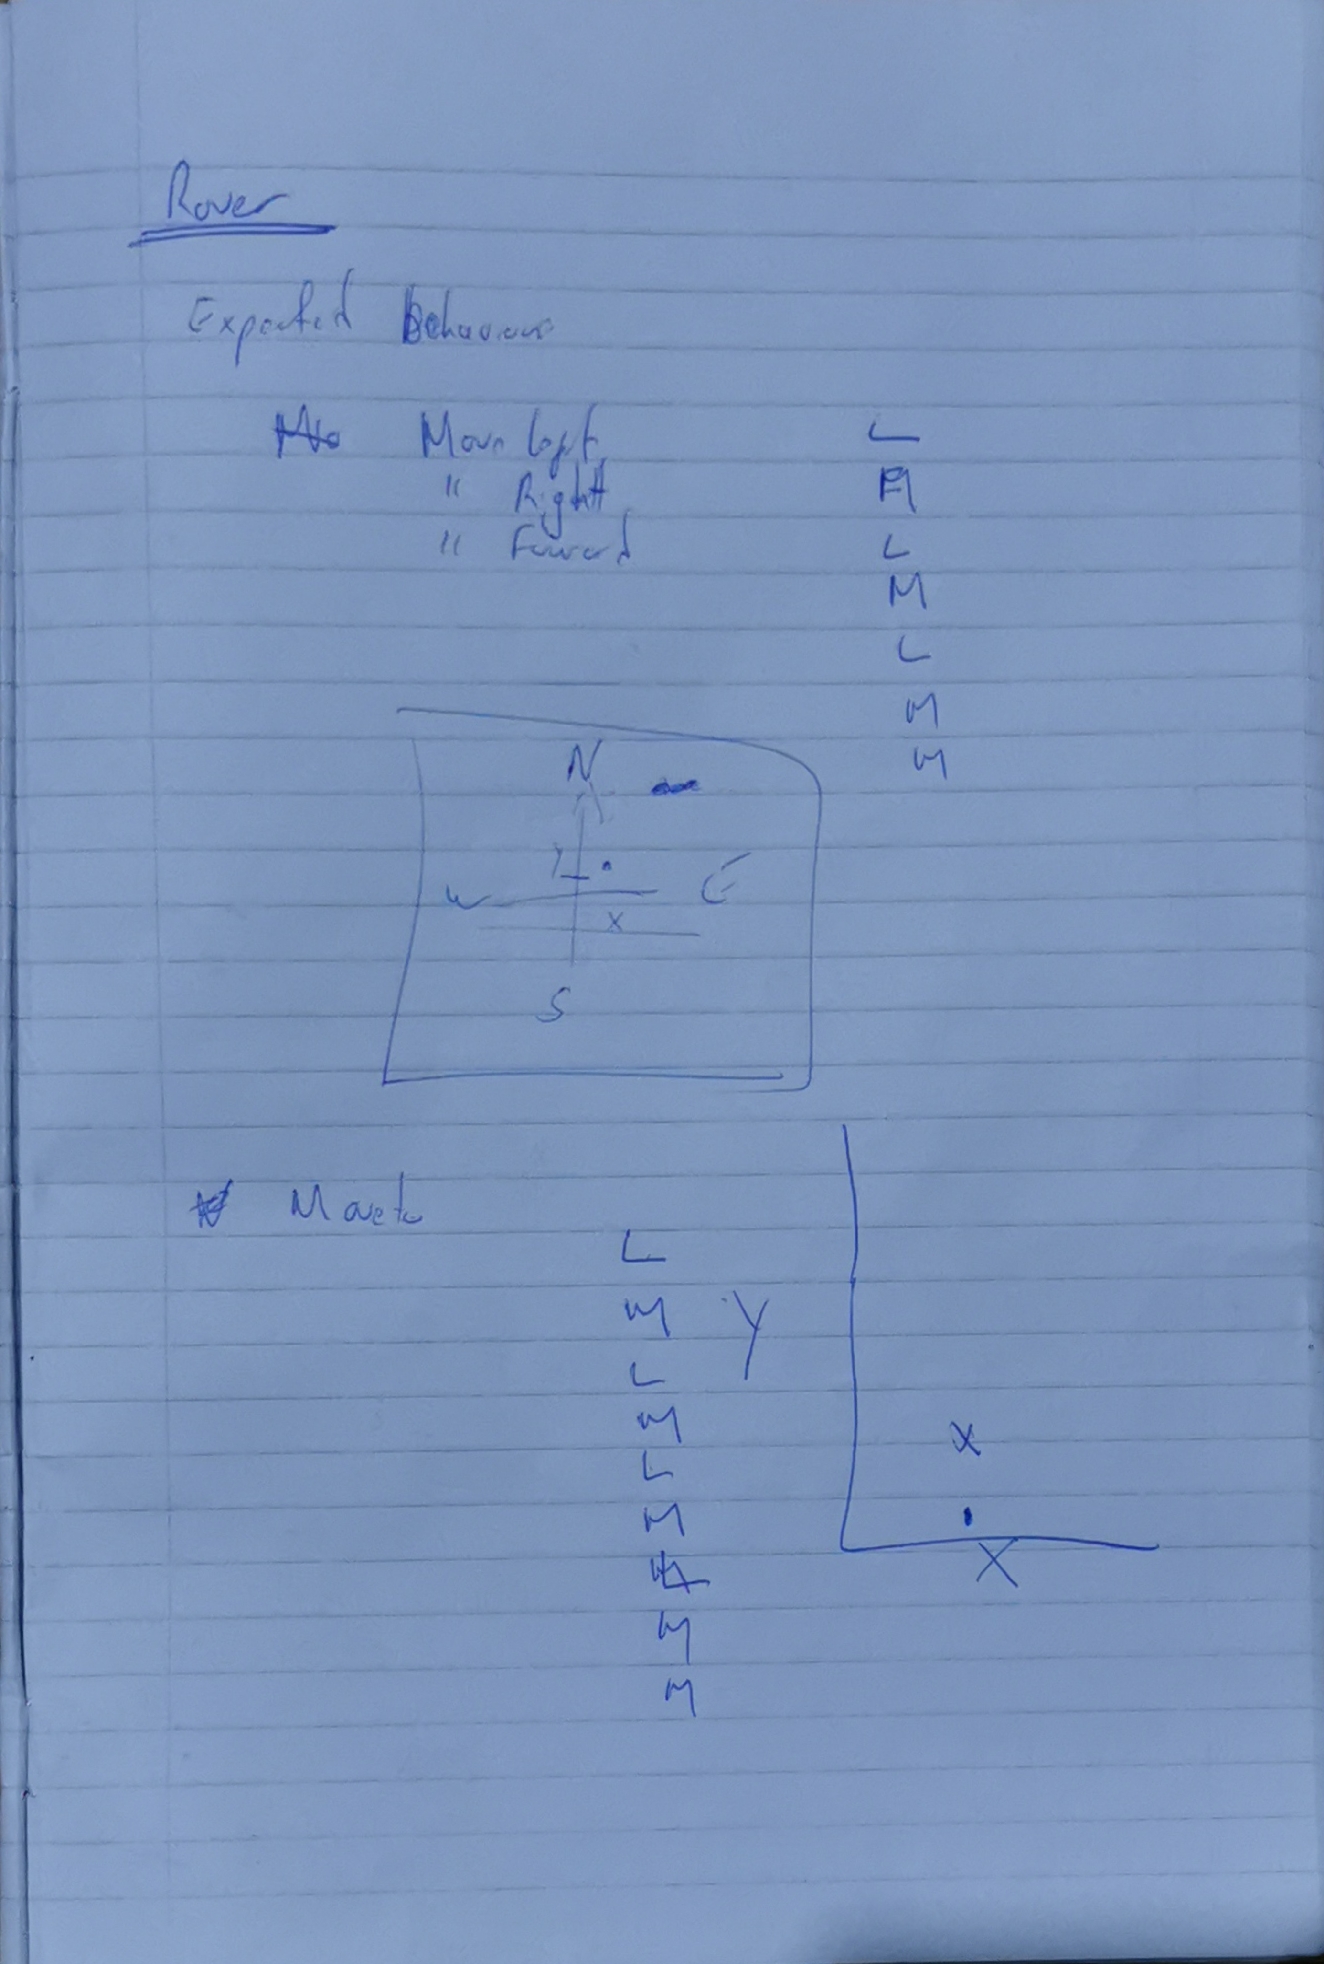 Rover
Expected Behaviour
Move left
" Right
" Forward
L
L
M
L
M
M
N
Y
W
E
X
S
Move
L
M
Y
L
M
L
M
M
M
X
X